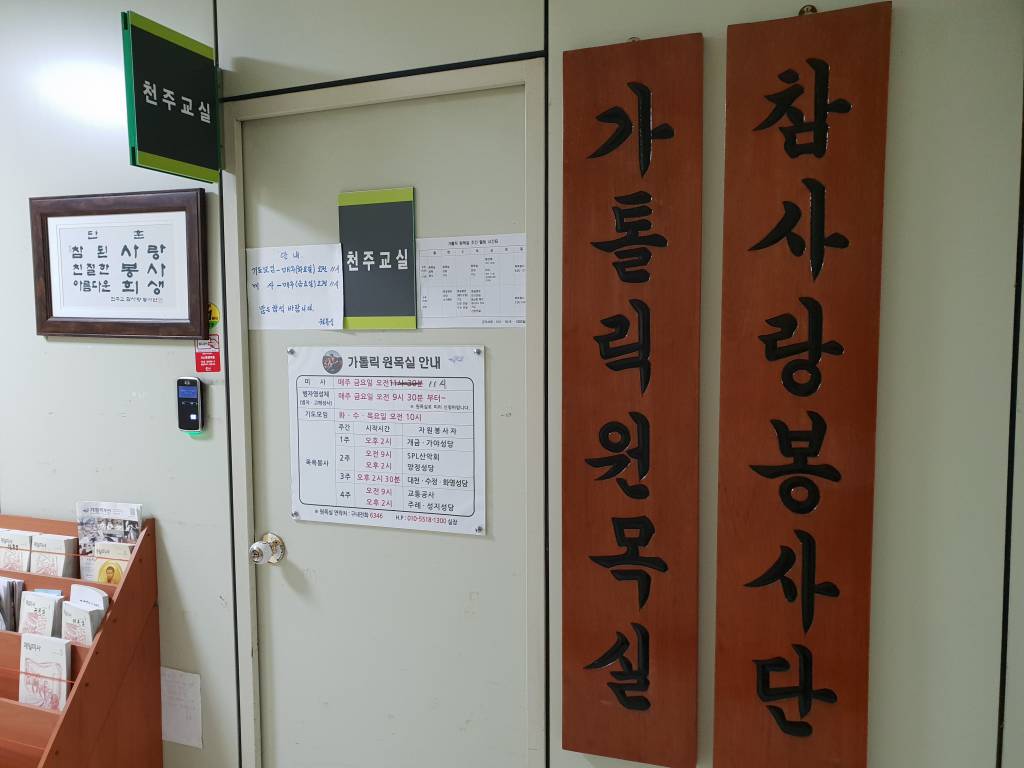 천주교실
단 초
참 된 사랑
친절한 봉사
아름다운 희생
안 내
매주(화요일) 오전 11시
미 사 - 매주(금요일) 오전 11시
참석 바랍니다.
천주교실
가톨릭 원목실 안내
미 사 매주 금요일 오전 11시 30분 11시
병자영성체 매주 금요일 오전 9시 30분 부터~
(병자·고해성사)
기도모임 화·수·목요일 오전 10시
목욕봉사 주간 시작시간 자원봉사자
1주 오후 2시 개금·가야성당
2주 오전 9시 SPL산악회
오후 2시 양정성당
3주 오후 2시 30분 대천·수정·화명성당
4주 오전 9시 교통공사
오후 2시 주례·성지성당
※ 원목실 연락처 : 구내전화 6346 H.P : 010-5518-1300 실장
매일미사
매일미사
가톨릭원목실
참사랑봉사단